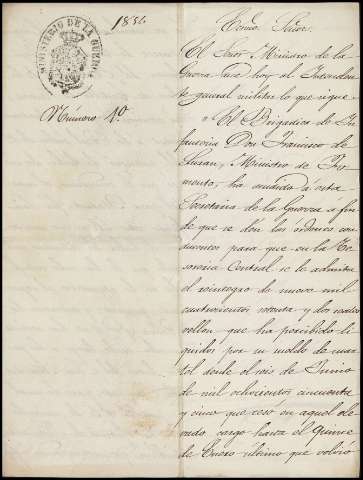 MINISTERIO DE LA GUERRA
1856
Número 4º
Excmo. Señor.
El Señor Ministro de la
Guerra dice hoy al Intenden-
te general militar lo que sigue.
"El Brigadier de In-
fanteria Don Francisco de
Luxan, Ministro de Fo-
mento, ha acudido á esta
Secretaría de la Guerra á fin
de que se den las órdenes con-
ducentes para que en la Te-
soreria Central se le admita
el reintegro de nueve mil
cuatrocientos noventa y dos reales
vellon que ha percibido li-
quidos por su sueldo de cuar-
tel desde el seis de Junio
de mil ochocientos cincuenta
y cinco que cesó en aquel ele-
vado cargo hasta el quince
de Enero último que volvió